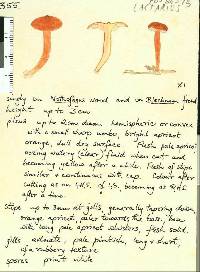 355
LACTARIUS
X1
singly on Nothofagus wood and on Blechnum frond
height up to 3cm
pileus up to 2cm diam. hemispheric or convex
with a small sharp umbo, bright apricot
orange, dull dry surface. Flesh pale apricot
oozing watery (clear) fluid when cut and
becoming yellow after a while. Flesh of stipe
similar & continuous with cap. Colour after
cutting as on
after a time.
stipe up to 3mm at gills, generally tapering down
orange apricot, paler towards the base, base
with long pale apricot whiskers, flesh solid.
gills adnate, pale pinkish, long & short,
of a rubbery texture
spores print white